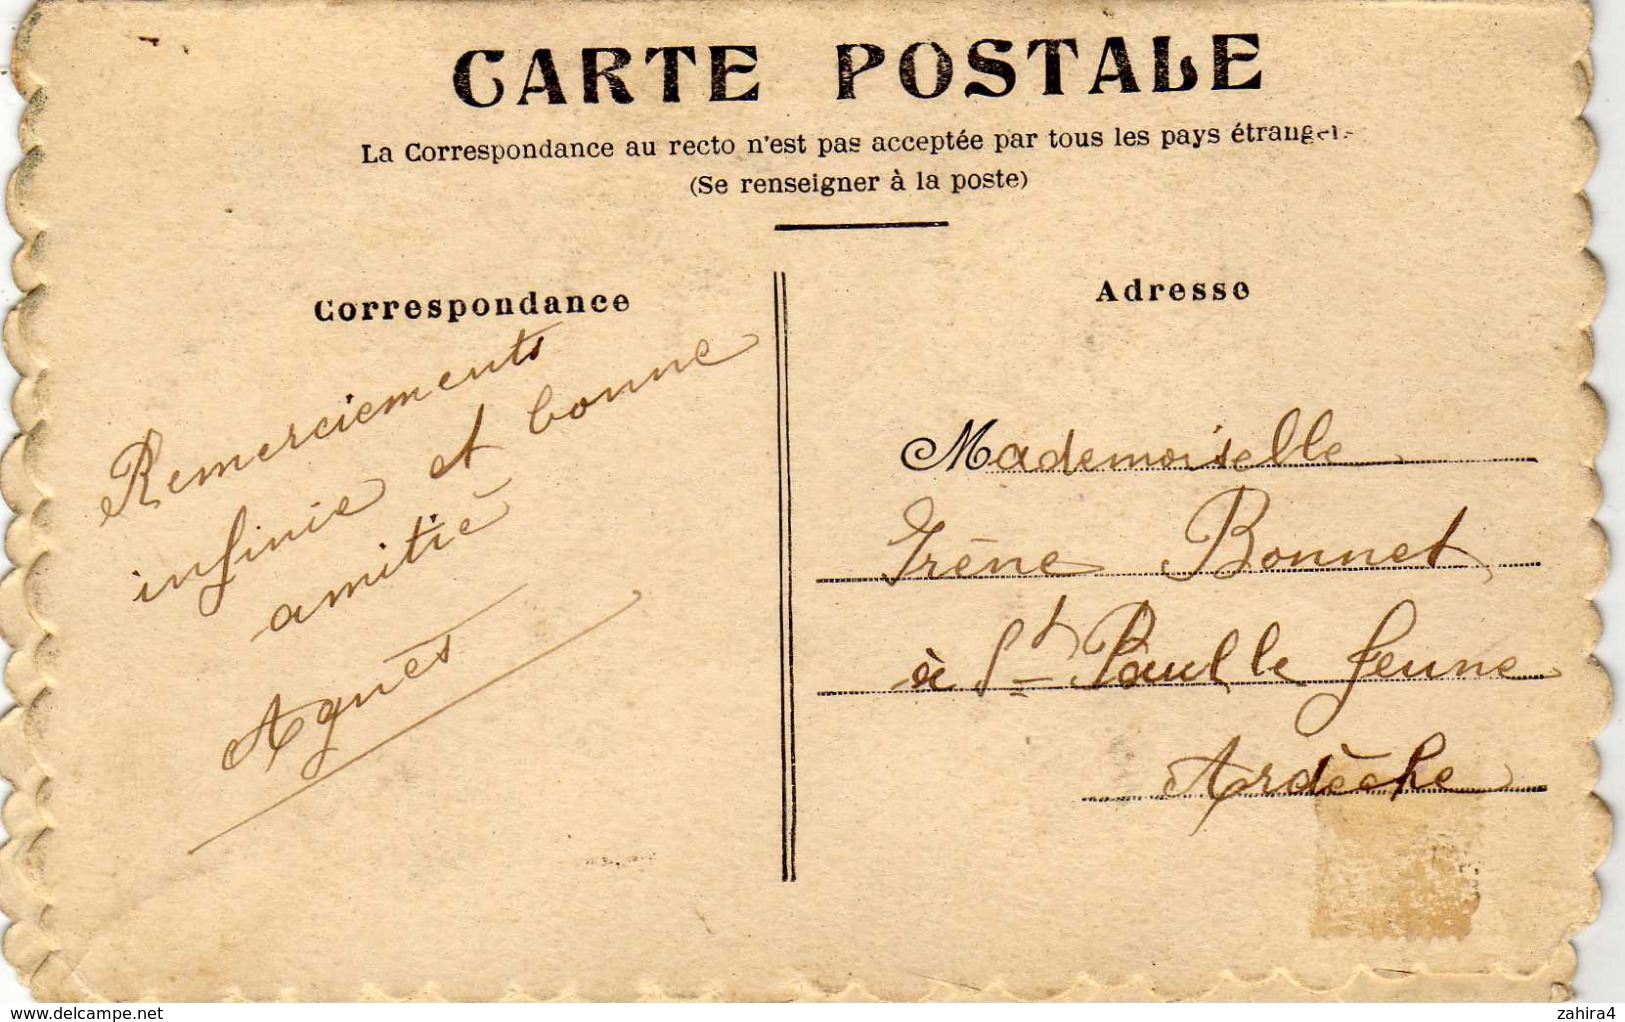 CARTE POSTALE
La Correspondance au recto n'est pas acceptée par tous les pays étrangers
(Se renseigner à la poste)
Correspondance
Remerciements
infinie et bonne
amitié
Agnès
Adresse
Mademoiselle
Irène Bonnet
à St Paul le Jeune
Ardèche
www.delcampe.net
zahira4